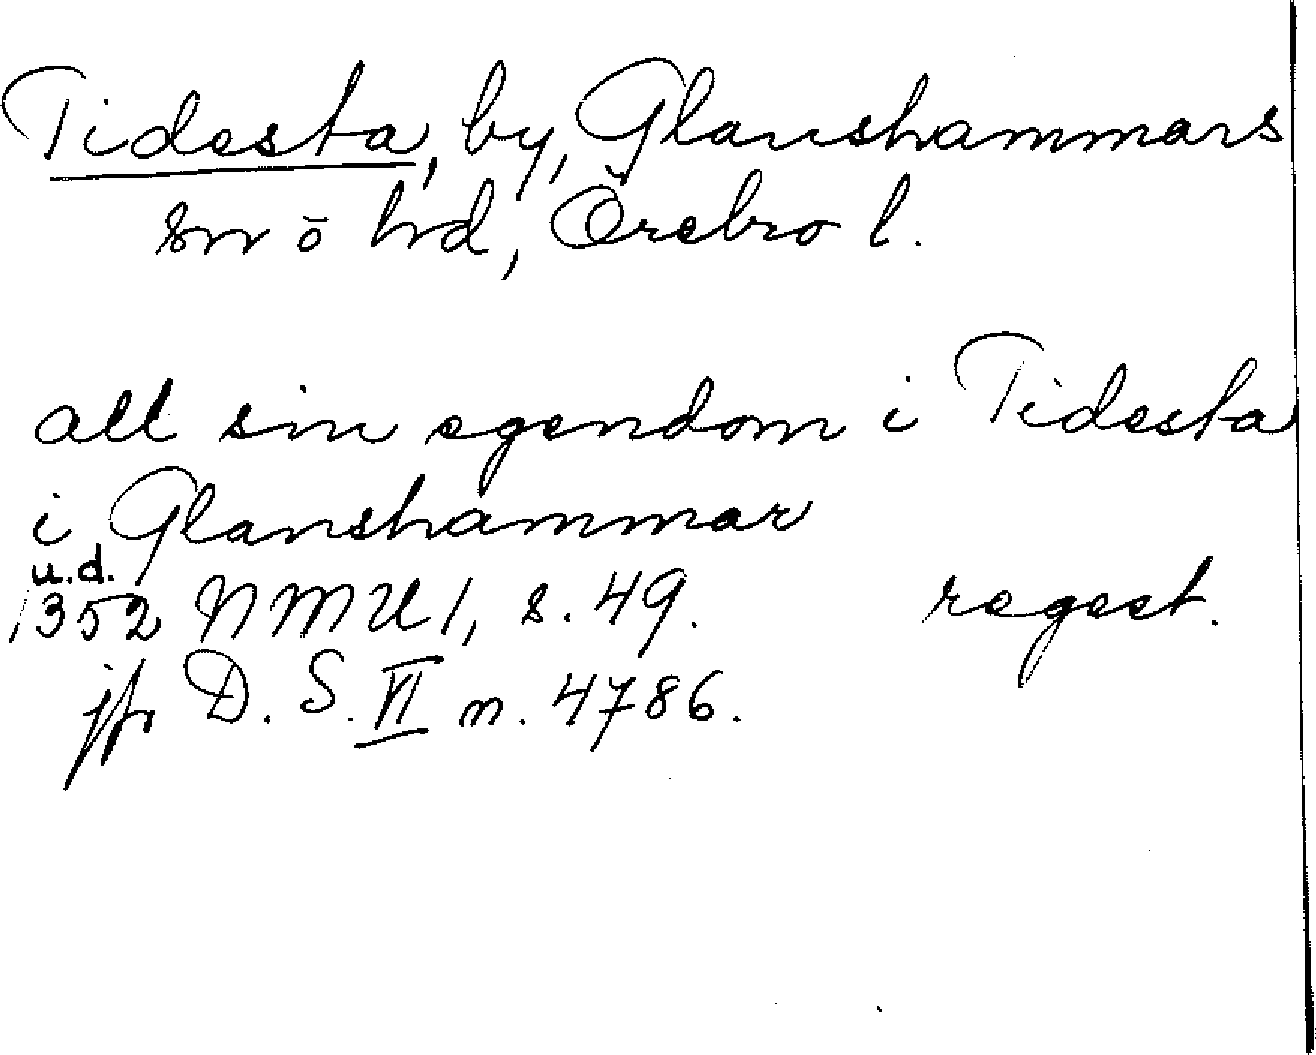 Tidesta, by, Glanshammars
sn o hd, Örebro l.
all sin egendom i Tidesta
i Glanshammar
u.d.
1352 NMU 1, s. 49. regest.
jfr D. S. VI n. 4786.